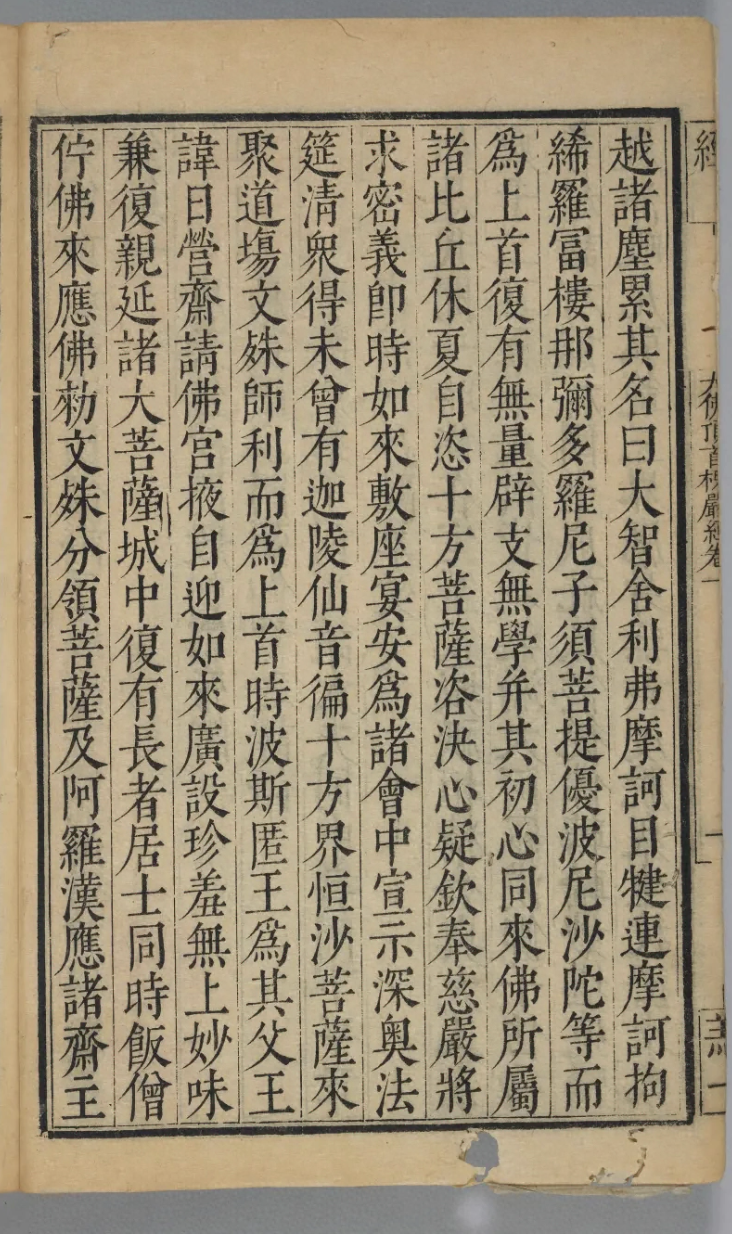 經
大佛頂首楞嚴經卷一
一
越諸塵累其名曰大智舍利弗摩訶目犍連摩訶拘
絺羅冨樓那彌多羅尼子須菩提優波尼沙陀等而
爲上首復有無量辟支無學并其初心同來佛所屬
諸比丘休夏自恣十方菩薩咨決心疑欽奉慈嚴將
求密義卽時如來敷座宴安爲諸會中宣示深奥法
筵清衆得未曾有迦陵仙音徧十方界恒沙菩薩來
聚道塲文殊師利而爲上首時波斯匿王爲其父王
諱日營齋請佛宮掖自迎如來廣設珍羞無上妙味
兼復親延諸大菩薩城中復有長者居士同時飯僧
佇佛來應佛勑文殊分領菩薩及阿羅漢應諸齋主